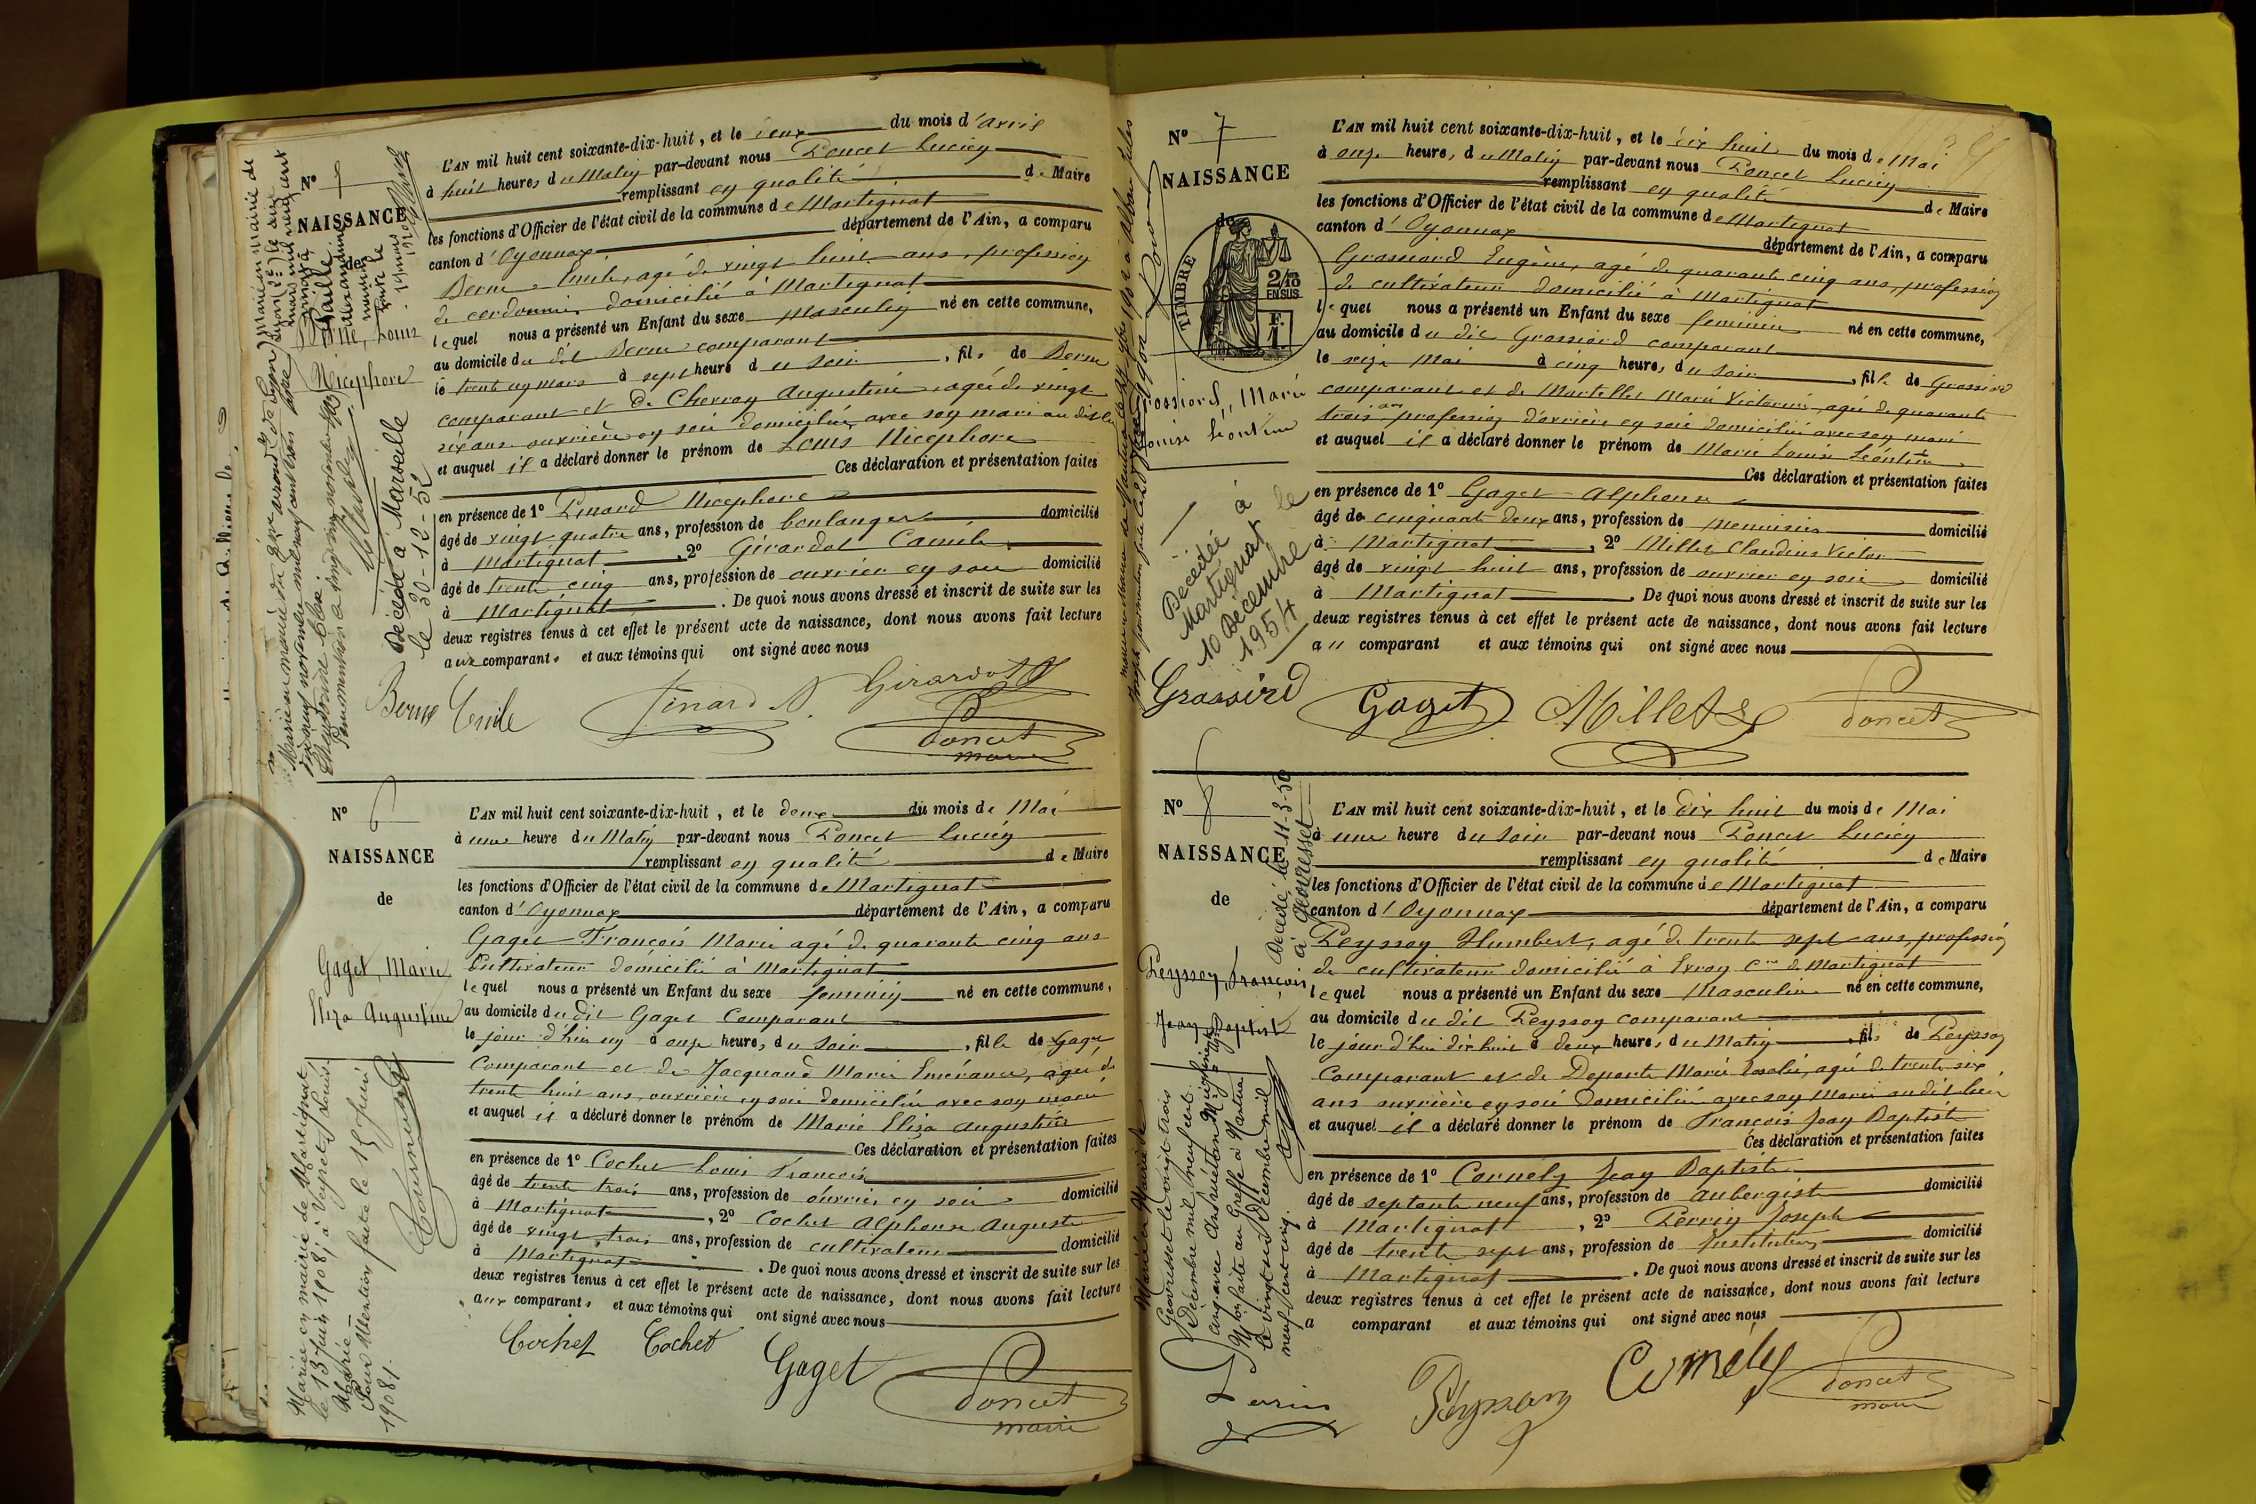 N°
NAISSANCE
de
Berne, Louis
Nicephore
Décédé à Marseille
le 30-12-52
L'AN mil huit cent soixante-dix-huit, et le deux du mois d'avril
à huit heures du Matin par-devant nous Poncet Lucien
remplissant en qualité de Maire
les fonctions d'Officier de l'état civil de la commune de Martignat
canton d'Oyonnax département de l'Ain, a comparu
Berne Emile, agé de vingt huit ans, profession
de cordonnier domicilié à Martignat
lequel nous a présenté un Enfant du sexe Masculin né en cette commune,
au domicile du dit Berne comparant
le trente un mars à sept heures du soir, fils de Berne
comparant et de Chevron Augustine, agée de vingt
six ans ouvrière en soie domiciliée avec son mari au dit lieu
et auquel il a déclaré donner le prénom de Louis Nicephore
Ces déclaration et présentation faites
en présence de 1° Pinard Nicephore
âgé de vingt quatre ans, profession de boulanger domicilié
à Martignat, 2° Girardot Camile
âgé de trente cinq ans, profession de ouvrier en soie domicilié
à Martignat. De quoi nous avons dressé et inscrit de suite sur les
deux registres tenus à cet effet le présent acte de naissance, dont nous avons fait lecture
aux comparants et aux témoins qui ont signé avec nous
Berne Emile Pinard N. Girardot
Poncet
maire
N° 6
NAISSANCE
de
Gaget, Marie
Eliza Augustine
Mariée en mairie de Martignat
le 13 Juin 1908, à Veyret, Louis
Pour Mention faite le 15 Juin
1908.
L'AN mil huit cent soixante-dix-huit, et le deux du mois de Mai
à une heure du Matin par-devant nous Poncet Lucien
remplissant en qualité de Maire
les fonctions d'Officier de l'état civil de la commune de Martignat
canton d'Oyonnax département de l'Ain, a comparu
Gaget François Marie agé de quarante cinq ans
Cultivateur domicilié à Martignat
lequel nous a présenté un Enfant du sexe feminin né en cette commune,
au domicile du dit Gaget Comparant
le jour d'hier à onze heures, du Soir, fille de Gaget
Comparant et de Jacquand Marie Emérance, agée de
trente huit ans, ouvrière en soie domiciliée avec son mari
et auquel il a déclaré donner le prénom de Marie Eliza Augustine
Ces déclaration et présentation faites
en présence de 1° Cochet Louis François
âgé de trente trois ans, profession de ouvrier en soie domicilié
à Martignat, 2° Cochet Alphonse Auguste
âgé de vingt trois ans, profession de cultivateur domicilié
à Martignat. De quoi nous avons dressé et inscrit de suite sur les
deux registres tenus à cet effet le présent acte de naissance, dont nous avons fait lecture
aux comparants et aux témoins qui ont signé avec nous
Cochet Cochet Gaget Poncet
maire
N° 7
NAISSANCE
de
TIMBRE
2/10
EN SUS
F.
1
Grossiord, Marie
Louise Léontine
Décédée à
Martignat le
10 Décembre
1954
L'AN mil huit cent soixante-dix-huit, et le dix huit du mois de Mai
à onze heures, du Matin par-devant nous Poncet Lucien
remplissant en qualité de Maire
les fonctions d'Officier de l'état civil de la commune de Martignat
canton d'Oyonnax département de l'Ain, a comparu
Grossiord Eugène, agé de quarante cinq ans, profession
de cultivateur domicilié à Martignat
lequel nous a présenté un Enfant du sexe feminin né en cette commune,
au domicile du dit Grossiord comparant
le seize Mai à cinq heures, du Soir, fille de Grossiord
comparant et de Martellet Marie Victorine, agée de quarante
trois ans profession d'ouvrière en soie domiciliée avec son mari
et auquel il a déclaré donner le prénom de Marie Louise Léontine
Ces déclaration et présentation faites
en présence de 1° Gaget Alphonse
âgé de cinquante deux ans, profession de Menuisier domicilié
à Martignat, 2° Millet Claudius Victor
âgé de vingt huit ans, profession de ouvrier en soie domicilié
à Martignat. De quoi nous avons dressé et inscrit de suite sur les
deux registres tenus à cet effet le présent acte de naissance, dont nous avons fait lecture
au comparant et aux témoins qui ont signé avec nous
Grossiord Gaget Millet Poncet
N° 8
NAISSANCE
de
Peysson, François
Jean Baptiste
Décédé le 11-3-50
à Géovresset
Marié en Mairie de
Géovresset le vingt trois
Décembre mil neuf cent
cinq avec
le vingt six Décembre mil
neuf cent cinq.
L'AN mil huit cent soixante-dix-huit, et le dix huit du mois de Mai
à une heure du Soir par-devant nous Poncet Lucien
remplissant en qualité de Maire
les fonctions d'Officier de l'état civil de la commune de Martignat
canton d'Oyonnax département de l'Ain, a comparu
Peysson Humbert, agé de trente sept ans, profession
de cultivateur domicilié à Evron Cne de Martignat
lequel nous a présenté un Enfant du sexe Masculin né en cette commune,
au domicile du dit Peysson comparant
le jour d'hui dix huit à deux heures, du Matin, fils de Peysson
Comparant et de Deporte Marie Rosalie, agée de trente six
ans ouvrière en soie domiciliée avec son Mari sudit lieu
et auquel il a déclaré donner le prénom de François Jean Baptiste
Ces déclaration et présentation faites
en présence de 1° Cornely Jean Baptiste
âgé de septante neuf ans, profession de aubergiste domicilié
à Martignat, 2° Perrin Joseph
âgé de trente sept ans, profession de Instituteur domicilié
à Martignat. De quoi nous avons dressé et inscrit de suite sur les
deux registres tenus à cet effet le présent acte de naissance, dont nous avons fait lecture
a comparant et aux témoins qui ont signé avec nous
Perrin Peysson Cornély Poncet
maire